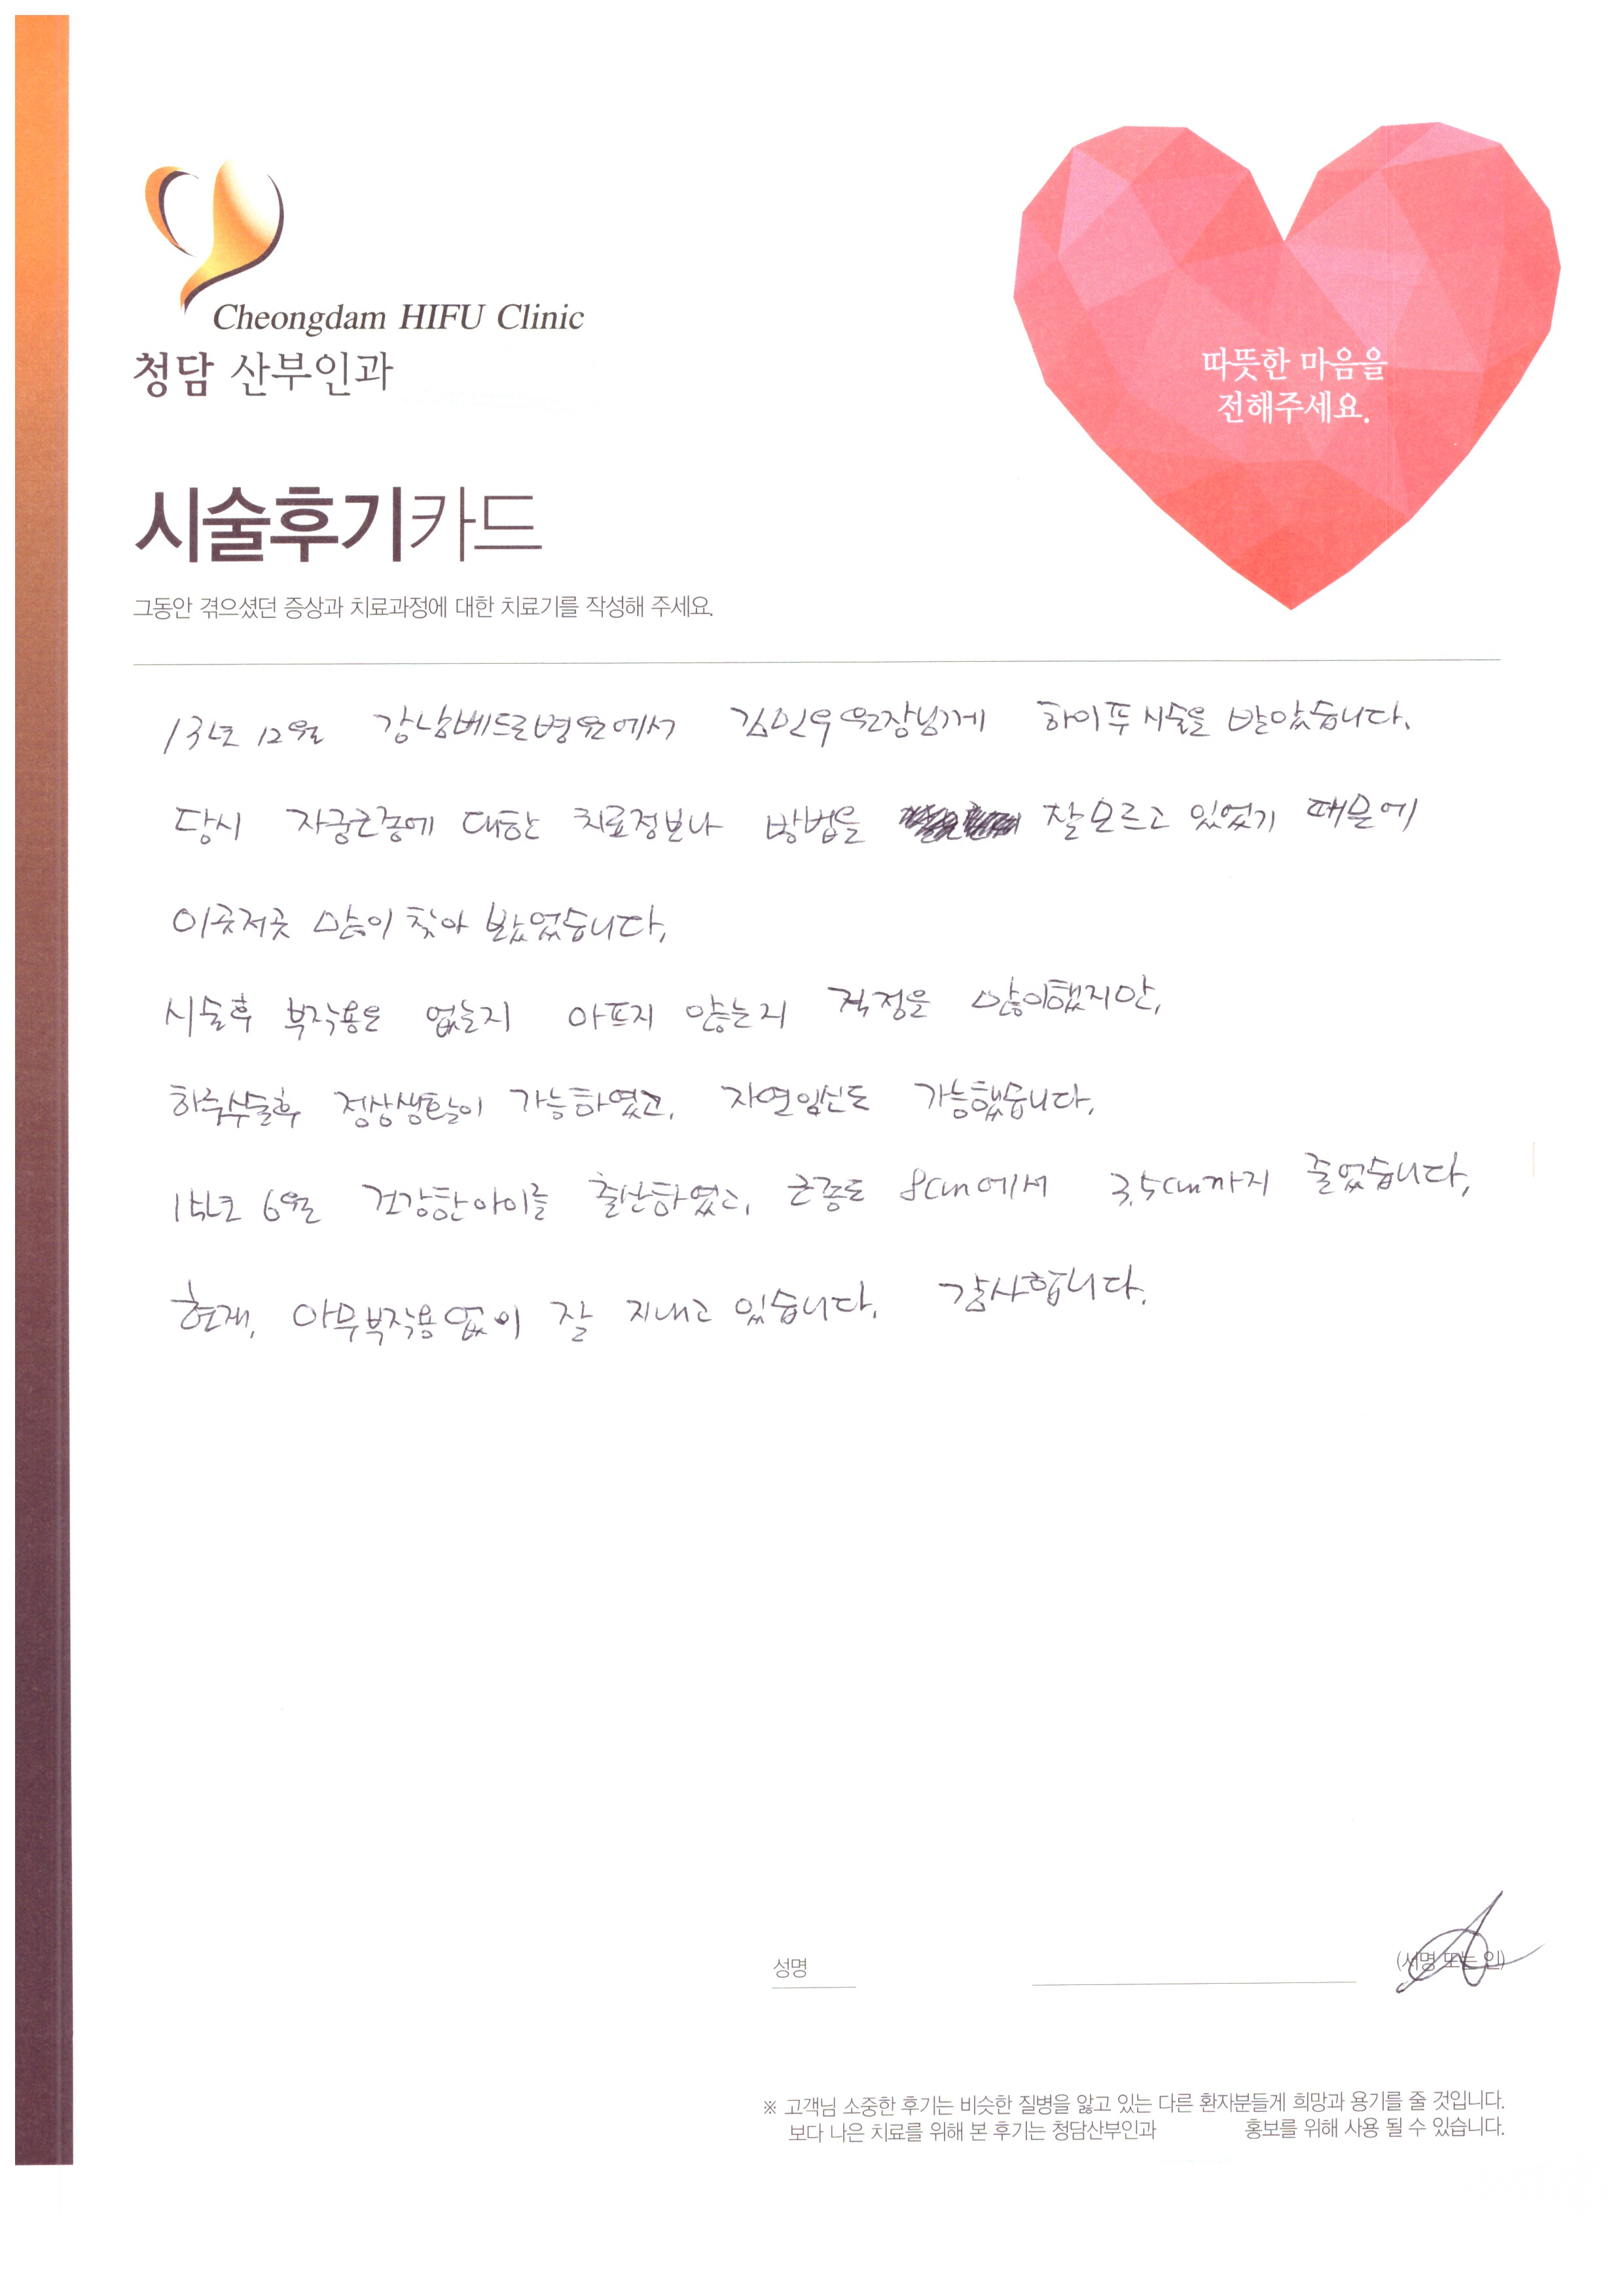 Cheongdam HIFU Clinic
청담 산부인과
따뜻한 마음을
전해주세요.
시술후기카드
그동안 겪으셨던 증상과 치료과정에 대한 치료기를 작성해 주세요.
13년 12월 강남베드로병원에서 김민우원장님께 하이푸 시술을 받았습니다.
당시 자궁근종에 대한 치료정보나 방법을 잘모르고 있었기 때문에
이곳저곳 많이 찾아 봤었습니다.
시술후 부작용은 없는지 아프지 않는지 걱정을 많이했지만,
하루수술후 정상생활이 가능하였고, 자연임신도 가능했습니다.
15년도 6월 건강한아이를 출산하였고, 근종도 8cm에서 3.5cm까지 줄었습니다,
현재, 아무부작용없이 잘 지내고 있습니다. 감사합니다.
성명
(서명 또는 인)
※ 고객님 소중한 후기는 비슷한 질병을 앓고 있는 다른 환자분들게 희망과 용기를 줄 것입니다.
보다 나은 치료를 위해 본 후기는 청담산부인과 홍보를 위해 사용 될 수 있습니다.